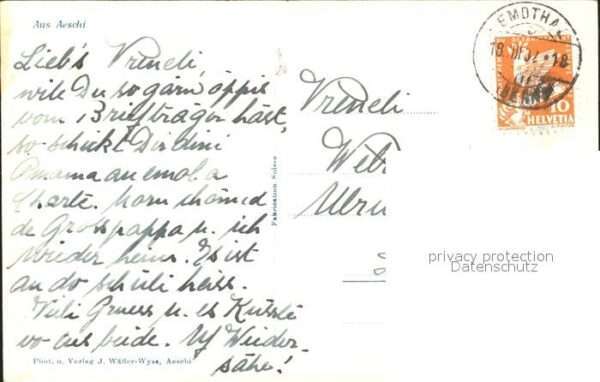 Aus Aeschi
Lieb's Vreneli,
wil Du so gärn öppis
vom Briefträger häst,
so schickt Dir dini
Omama au emol a
Charte. Morn chömid
de Grosspappa u. ich
wieder heim. Es ist
au do schüli heiss.
Vieli Grüess u. es Küssli
vo eus beide. Uf Wieder-
sähe!
Phot. u. Verlag J. Wäfler-Wyss, Aeschi
Fabrication Suisse
Vreneli
HELVETIA
10
privacy protection
Datenschutz